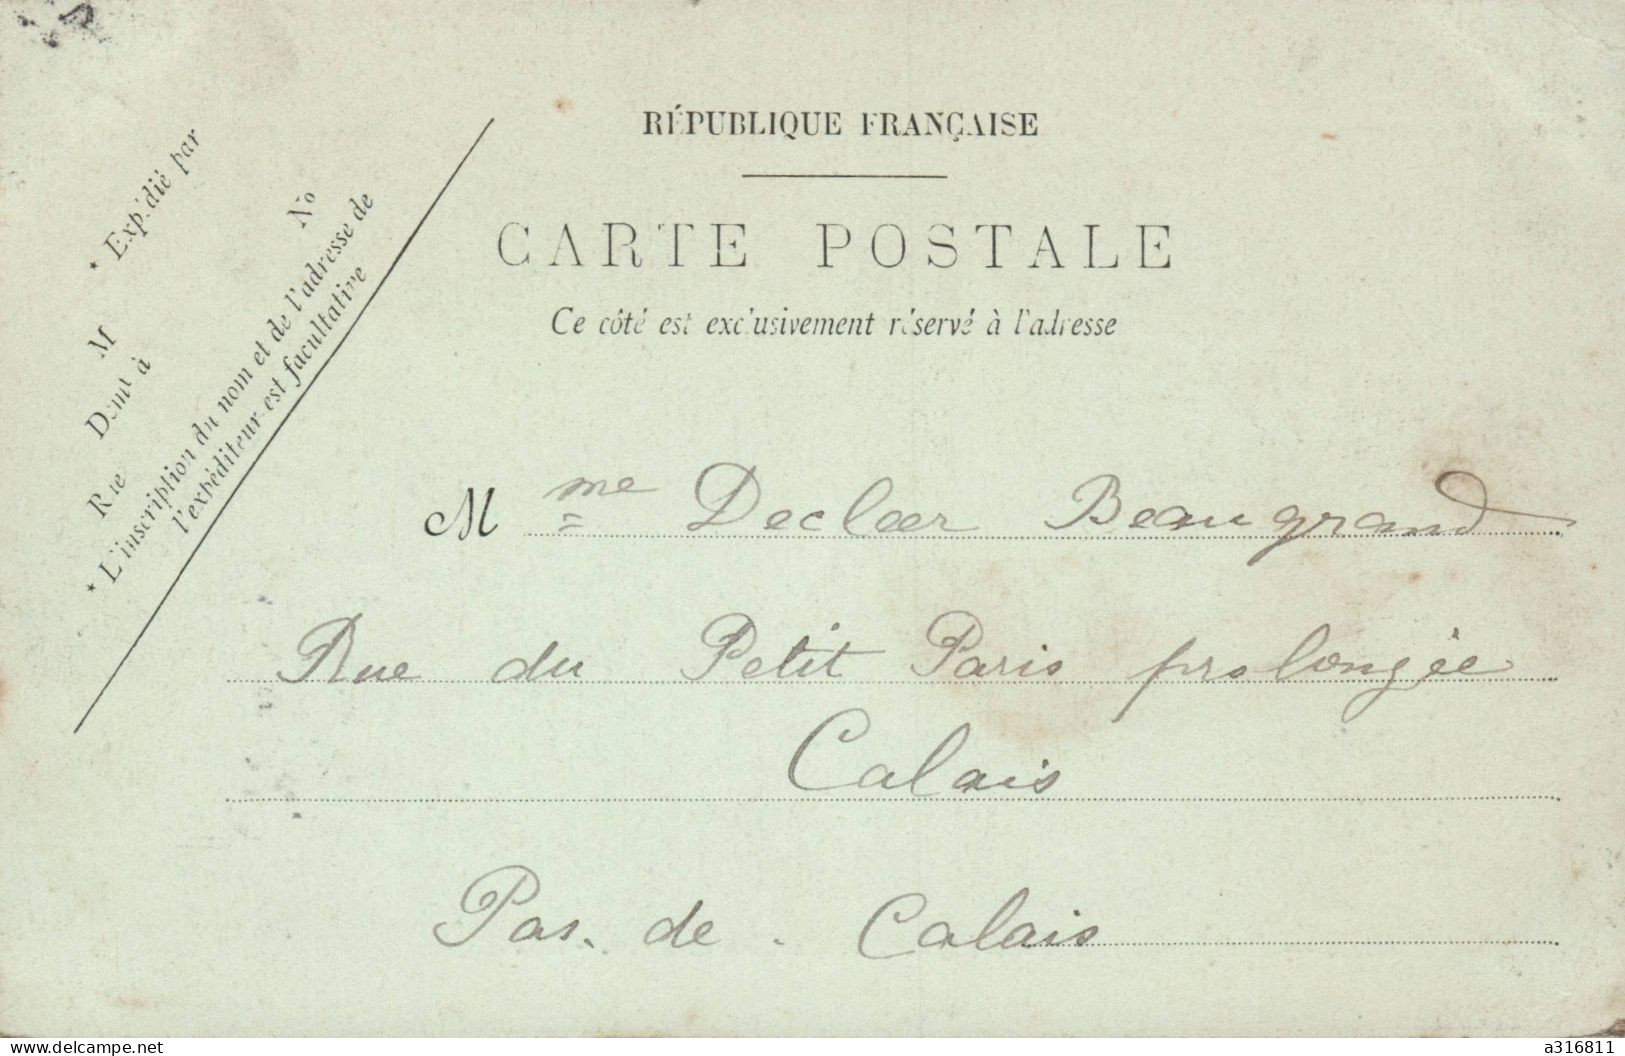 RÉPUBLIQUE FRANÇAISE
CARTE POSTALE
Ce côté est exclusivement réservé à l'adresse
* Expédié par
M
Demt à
Rue
No
* L'inscription du nom et de l'adresse de
l'expéditeur est facultative
Mme Decloer Beaugrand
Rue du Petit Paris prolongée
Calais
Pas. de. Calais
www.delcampe.net
a316811